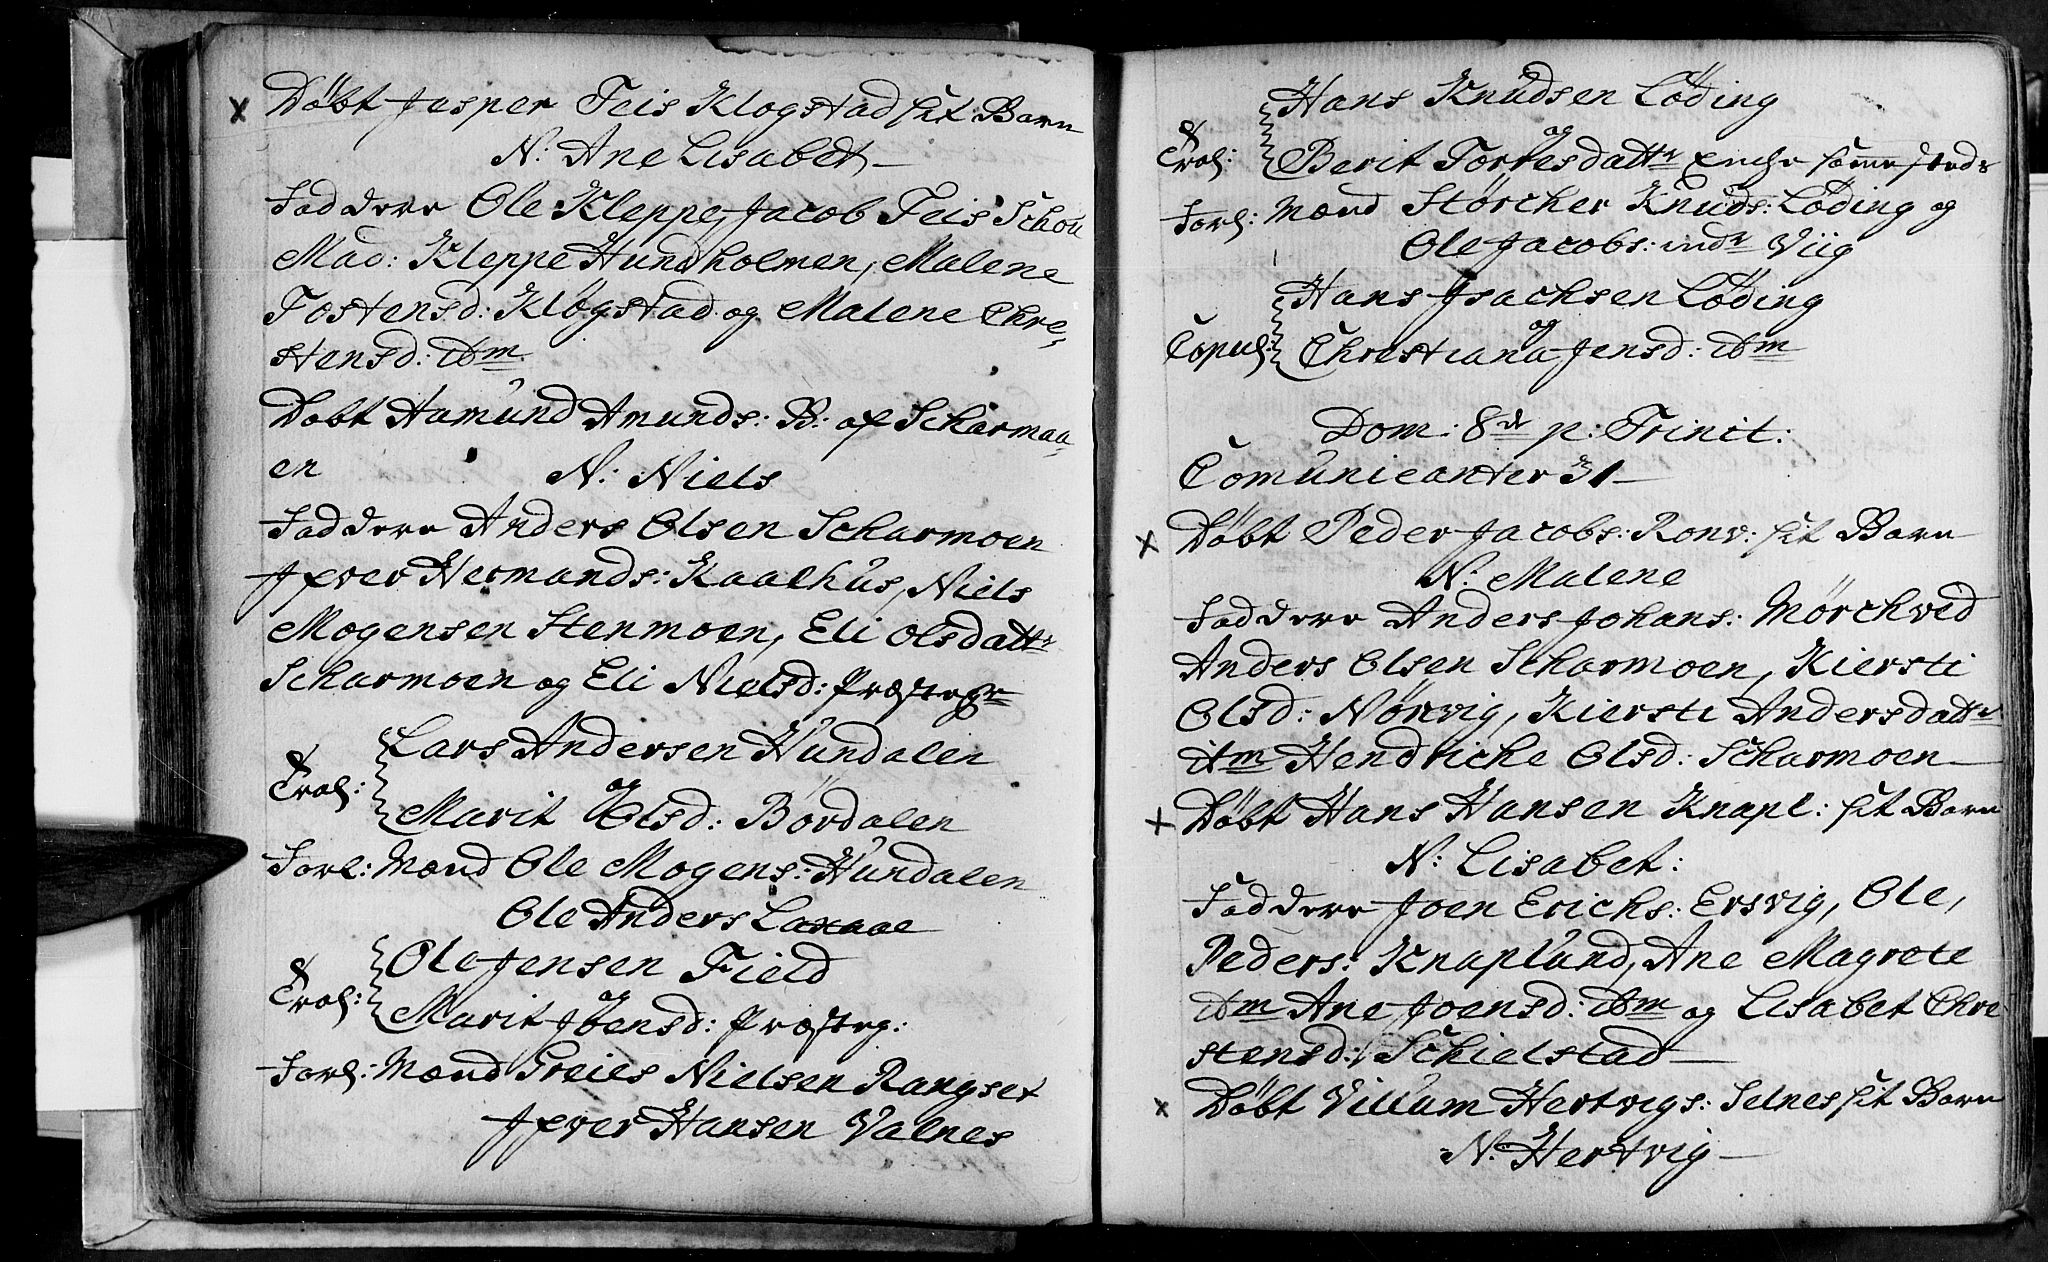 x Döbt Jesper Teis Klogstad sit Barn
N: Ane Lisabet
Faddere Ole Kleppe, Jacob Teis Schou
Mad: Kleppe Hundholmen, Malene
Tostensd: Klogstad og Malene Chre,
stensd: ibm
Döbt Hamund Amunds: B: af Scharmoe,
en N: Niels
Faddere Anders Olsen Scharmoen
Jfver Hermands: Kaalhus, Niels
Mogensen Stenmoen, Eli Olsdattr
Scharmoen og Eli Nielsd: Præstegr
Lars Andersen Hundalen
Trol: og
Marit Olsd: Bördalen
Forl: Mænd Ole Mogens: Hundalen
Ole Anders Laxaae
Ole Jensen Field
Trol: og
Marit Joensd: Præsteg:
Forl: Mænd Greies Nielsen Rangset
Jfver Hansen Valnes
Hans Knudsen Löding
Trol: og
Berit Torresdattr Enche samesteds
Forl: Mænd Störcher Knuds: Löding og
Ole Jacobs: indr Viig
Hans Jsachsen Löding
og
Copul: Chrestiana Jensd: ibm
Dom: 8de p: Trinit:
Comunicanter 31
x Döbt Peder Jacobs: Ronv: sit Barn
N: Malene
Faddere Anders Johans: Mörchved
Anders Olsen Scharmoen, Kiersti
Olsd: Nörvig, Kiersti Andersdattr
ibm Hendriche Olsd: Scharmoen
x Döbt Hans Hansen Knapl: sit Barn
N: Lisabet:
Faddere Joen Erichs: Ersvig, Ole,
Peders: Knaplund, Ane Magrete
ibm Ane Joensd: ibm og Lisabet Chre
stensd: Schielstad
x Döbt Villum Hertvigs: Selnes sit Barn
N: Hertvig